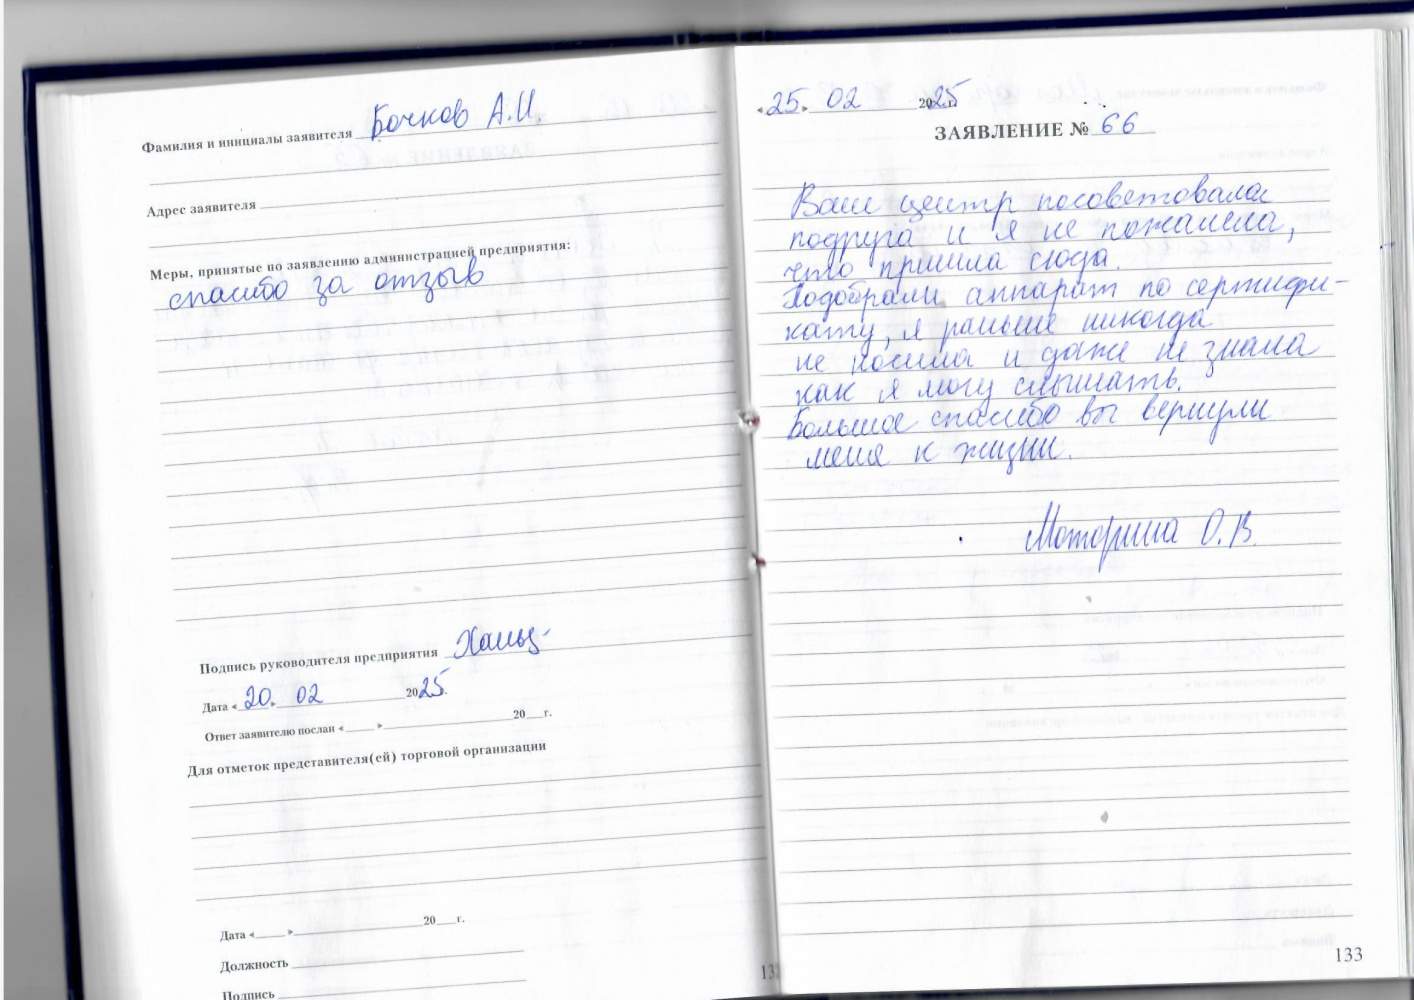 Фамилия и инициалы заявителя Бочков А.И.
Адрес заявителя
Меры, принятые по заявлению администрацией предприятия:
спасибо за отзыв
Подпись руководителя предприятия
Дата «20.» 02 2025.
Ответ заявителю послан «___» 20__г.
Для отметок представителя(ей) торговой организации
Дата «___» 20__г.
Должность
Подпись
«25» 02 2025г.
ЗАЯВЛЕНИЕ № 66
Ваш центр посоветовала
подруга и я не пожалела,
что пришла сюда.
Подобрали аппарат по сертифи-
кату, я раньше никогда
не носила и даже не знала
как я могу слышать.
Большое спасибо вы вернули
меня к жизни.
Моторина О.В.
133